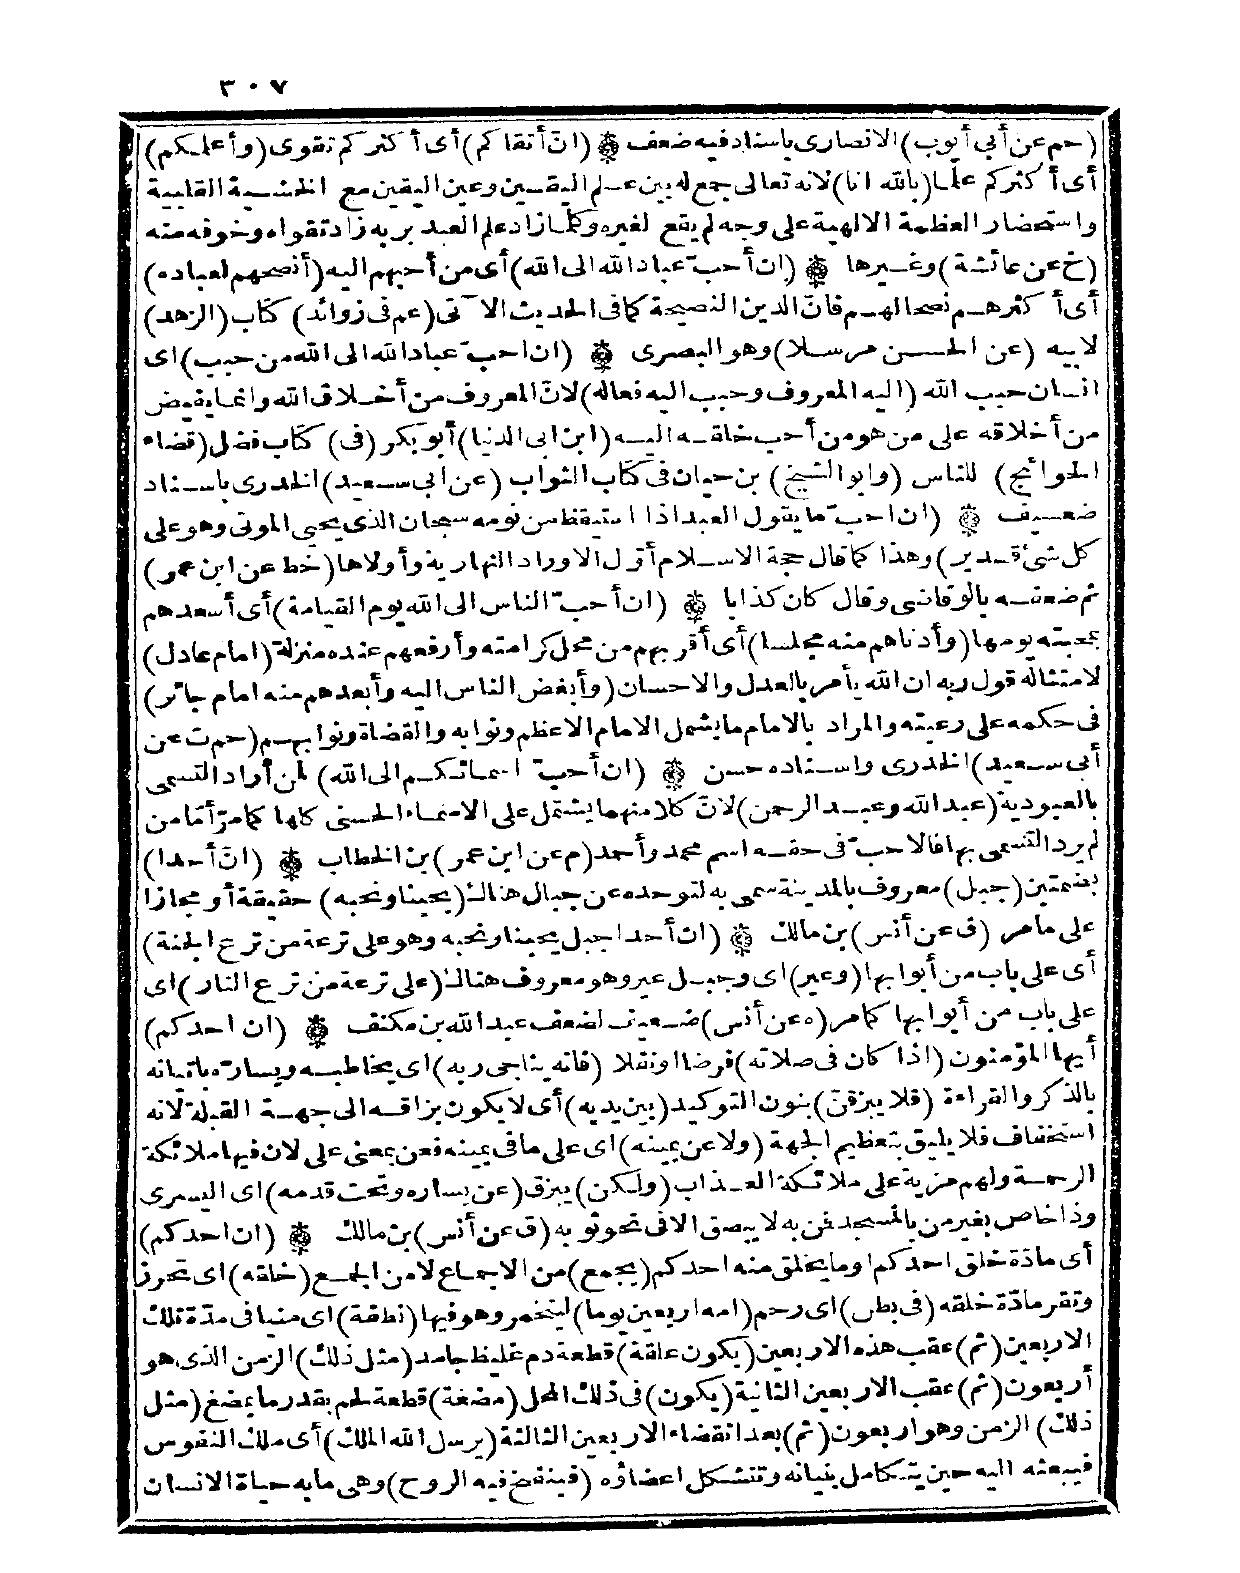 ٣٠٧
(حم عن أبي أيوب) الانصارى باسناد فيه ضعف ۞ (انّ أتقاكم) أى أكثركم تقوى (وأعلمكم)
أى أكثركم علما (بالله انا) لانه تعالى جمع له بين علم اليقين وعين اليقين مع الخشية القلبية
واستحضار العظمة الالهية على وجه لم يقع لغيره وكلما زاد علم العبد بربه زاد تقواه وخوفه منه
(خ عن عائشة) وغيرها ۞ (ان أحبّ عباد الله الى الله) أى من أحبهم اليه (أنصحهم لعباده)
أى أكثرهم نصحا لهم فانّ الدين النصيحة كما فى الحديث الآتى (عم فى زوائد) كتاب (الزهد)
لابيه (عن الحسن مرسلا) وهو البصرى ۞ (ان احبّ عباد الله الى الله من حبب) اى
انسان حبب الله (اليه المعروف وحبب اليه فعاله) لانّ المعروف من أخلاق الله وانما يفيض
من أخلاقه على من هو من أحب خلقه اليه (ابن ابى الدنيا) أبو بكر (فى) كتاب فضل (قضاء
الحوائج) للناس (وابو الشيخ) بن حيان فى كتاب الثواب (عن ابى سعيد) الخدرى باسناد
ضعيف ۞ (ان احبّ ما يقول العبد اذا استيقظ من نومه سبحان الذى يحيى الموتى وهو على
كل شئ قدير) وهذا كما قال حجة الاسلام أوّل الاوراد النهارية وأولاها (خط عن ابن عمر)
ثم ضعفه بالوقاصى وقال كان كذابا ۞ (ان أحبّ الناس الى الله يوم القيامة) أى أسعدهم
بمحبته يومها (وأدناهم منه مجلسا) أى أقربهم من محل كرامته وأرفعهم عنده منزلة (امام عادل)
لامتثاله قول ربه ان الله يأمر بالعدل والاحسان (وأبغض الناس اليه وأبعدهم منه امام جائر)
فى حكمه على رعيته والمراد بالامام ما يشمل الامام الاعظم ونوابه والقضاة ونوابهم (حم ت عن
أبى سعيد) الخدرى واسناده حسن ۞ (ان أحبّ اسمائكم الى الله) لمن أراد التسمى
بالعبودية (عبد الله وعبد الرحمن) لانّ كلا منهما يشتمل على الاسماء الحسنى كلها كما مرّ أمّا من
لم يرد التسمى بها فالاحبّ فى حقه اسم محمد وأحمد (م عن ابن عمر) بن الخطاب ۞ (انّ أحدا)
بضمتين (جبل) معروف بالمدينة سمى به لتوحده عن جبال هناك (يحبنا ونحبه) حقيقة أو مجازا
على ما مر (ق عن أنس) بن مالك ۞ (ان أحدا جبل يحبنا ونحبه وهو على ترعة من ترع الجنة)
أى على باب من أبوابها (وعير) اى وجبل عير وهو معروف هناك (على ترعة من ترع النار) اى
على باب من أبوابها كما مر (ه عن أنس) ضعيف لضعف عبد الله بن مكنف ۞ (ان احدكم)
أيها المؤمنون (اذا كان فى صلاته) فرضا او نفلا (فانه يناجى ربه) اى يخاطبه ويسارّه باتيانه
بالذكر والقراءة (فلا يبزقنّ) بنون التوكيد (بين يديه) أى لا يكون بزاقه الى جهة القبلة لانه
استخفاف فلا يليق بتعظيم الجهة (ولا عن يمينه) اى على ما فى يمينه فعن بمعنى على لان فيها ملائكة
الرحمة ولهم مزية على ملائكة العذاب (ولكن) يبزق (عن يساره وتحت قدمه) اى اليسرى
وذا خاص بغير من بالمسجد فمن به لا يبصق الا فى نحو ثوبه (ق عن أنس) بن مالك ۞ (ان احدكم)
أى مادّة خلق احدكم او ما يخلق منه احدكم (يجمع) من الاجماع لا من الجمع (خلقه) اى تحرز
وتقر مادّة خلقه (فى بطن) اى رحم (امه اربعين يوما) ليتخمر وهو فيها (نطفة) اى منيا فى مدّة تلك
الاربعين (ثم) عقب هذه الاربعين (يكون علقة) قطعة دم غليظ جامد (مثل ذلك) الزمن الذى هو
أربعون (ثم) عقب الاربعين الثانية (يكون) فى ذلك المحل (مضغة) قطعة لحم بقدر ما يمضغ (مثل
ذلك) الزمن وهو اربعون (ثم) بعد انقضاء الاربعين الثالثة (يرسل الله الملك) أى ملك النفوس
فيبعثه اليه حين يتكامل بنيانه وتتشكل اعضاؤه (فينفخ فيه الروح) وهى ما به حياة الانسان